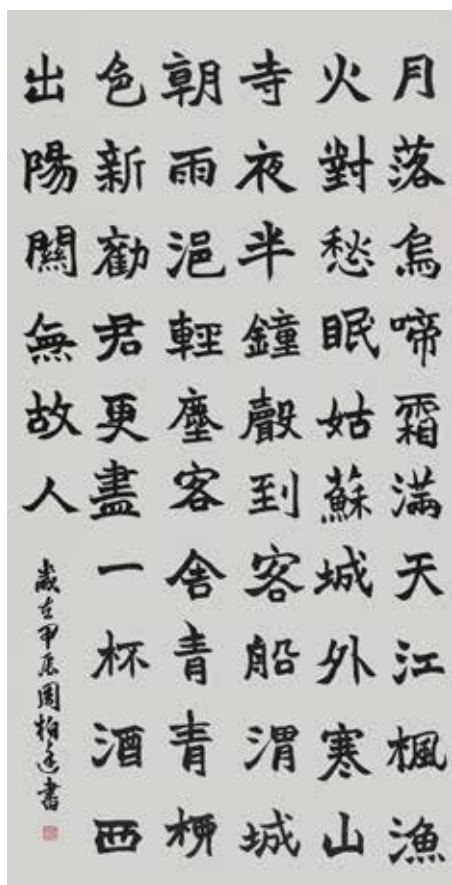 月落烏啼霜滿天江楓漁
火對愁眠姑蘇城外寒山
寺夜半鐘聲到客船渭城
朝雨浥輕塵客舍青青柳
色新勸君更盡一杯酒西
出陽關無故人
歲在甲辰周柏書